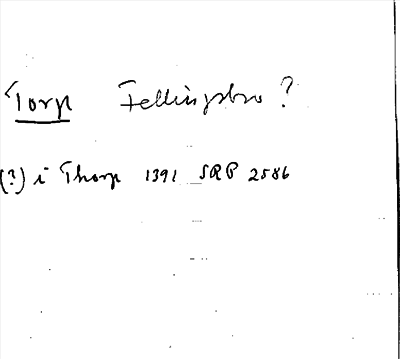 Torp Fellingsbro?
(?) i Thorp 1391 SRP 2586